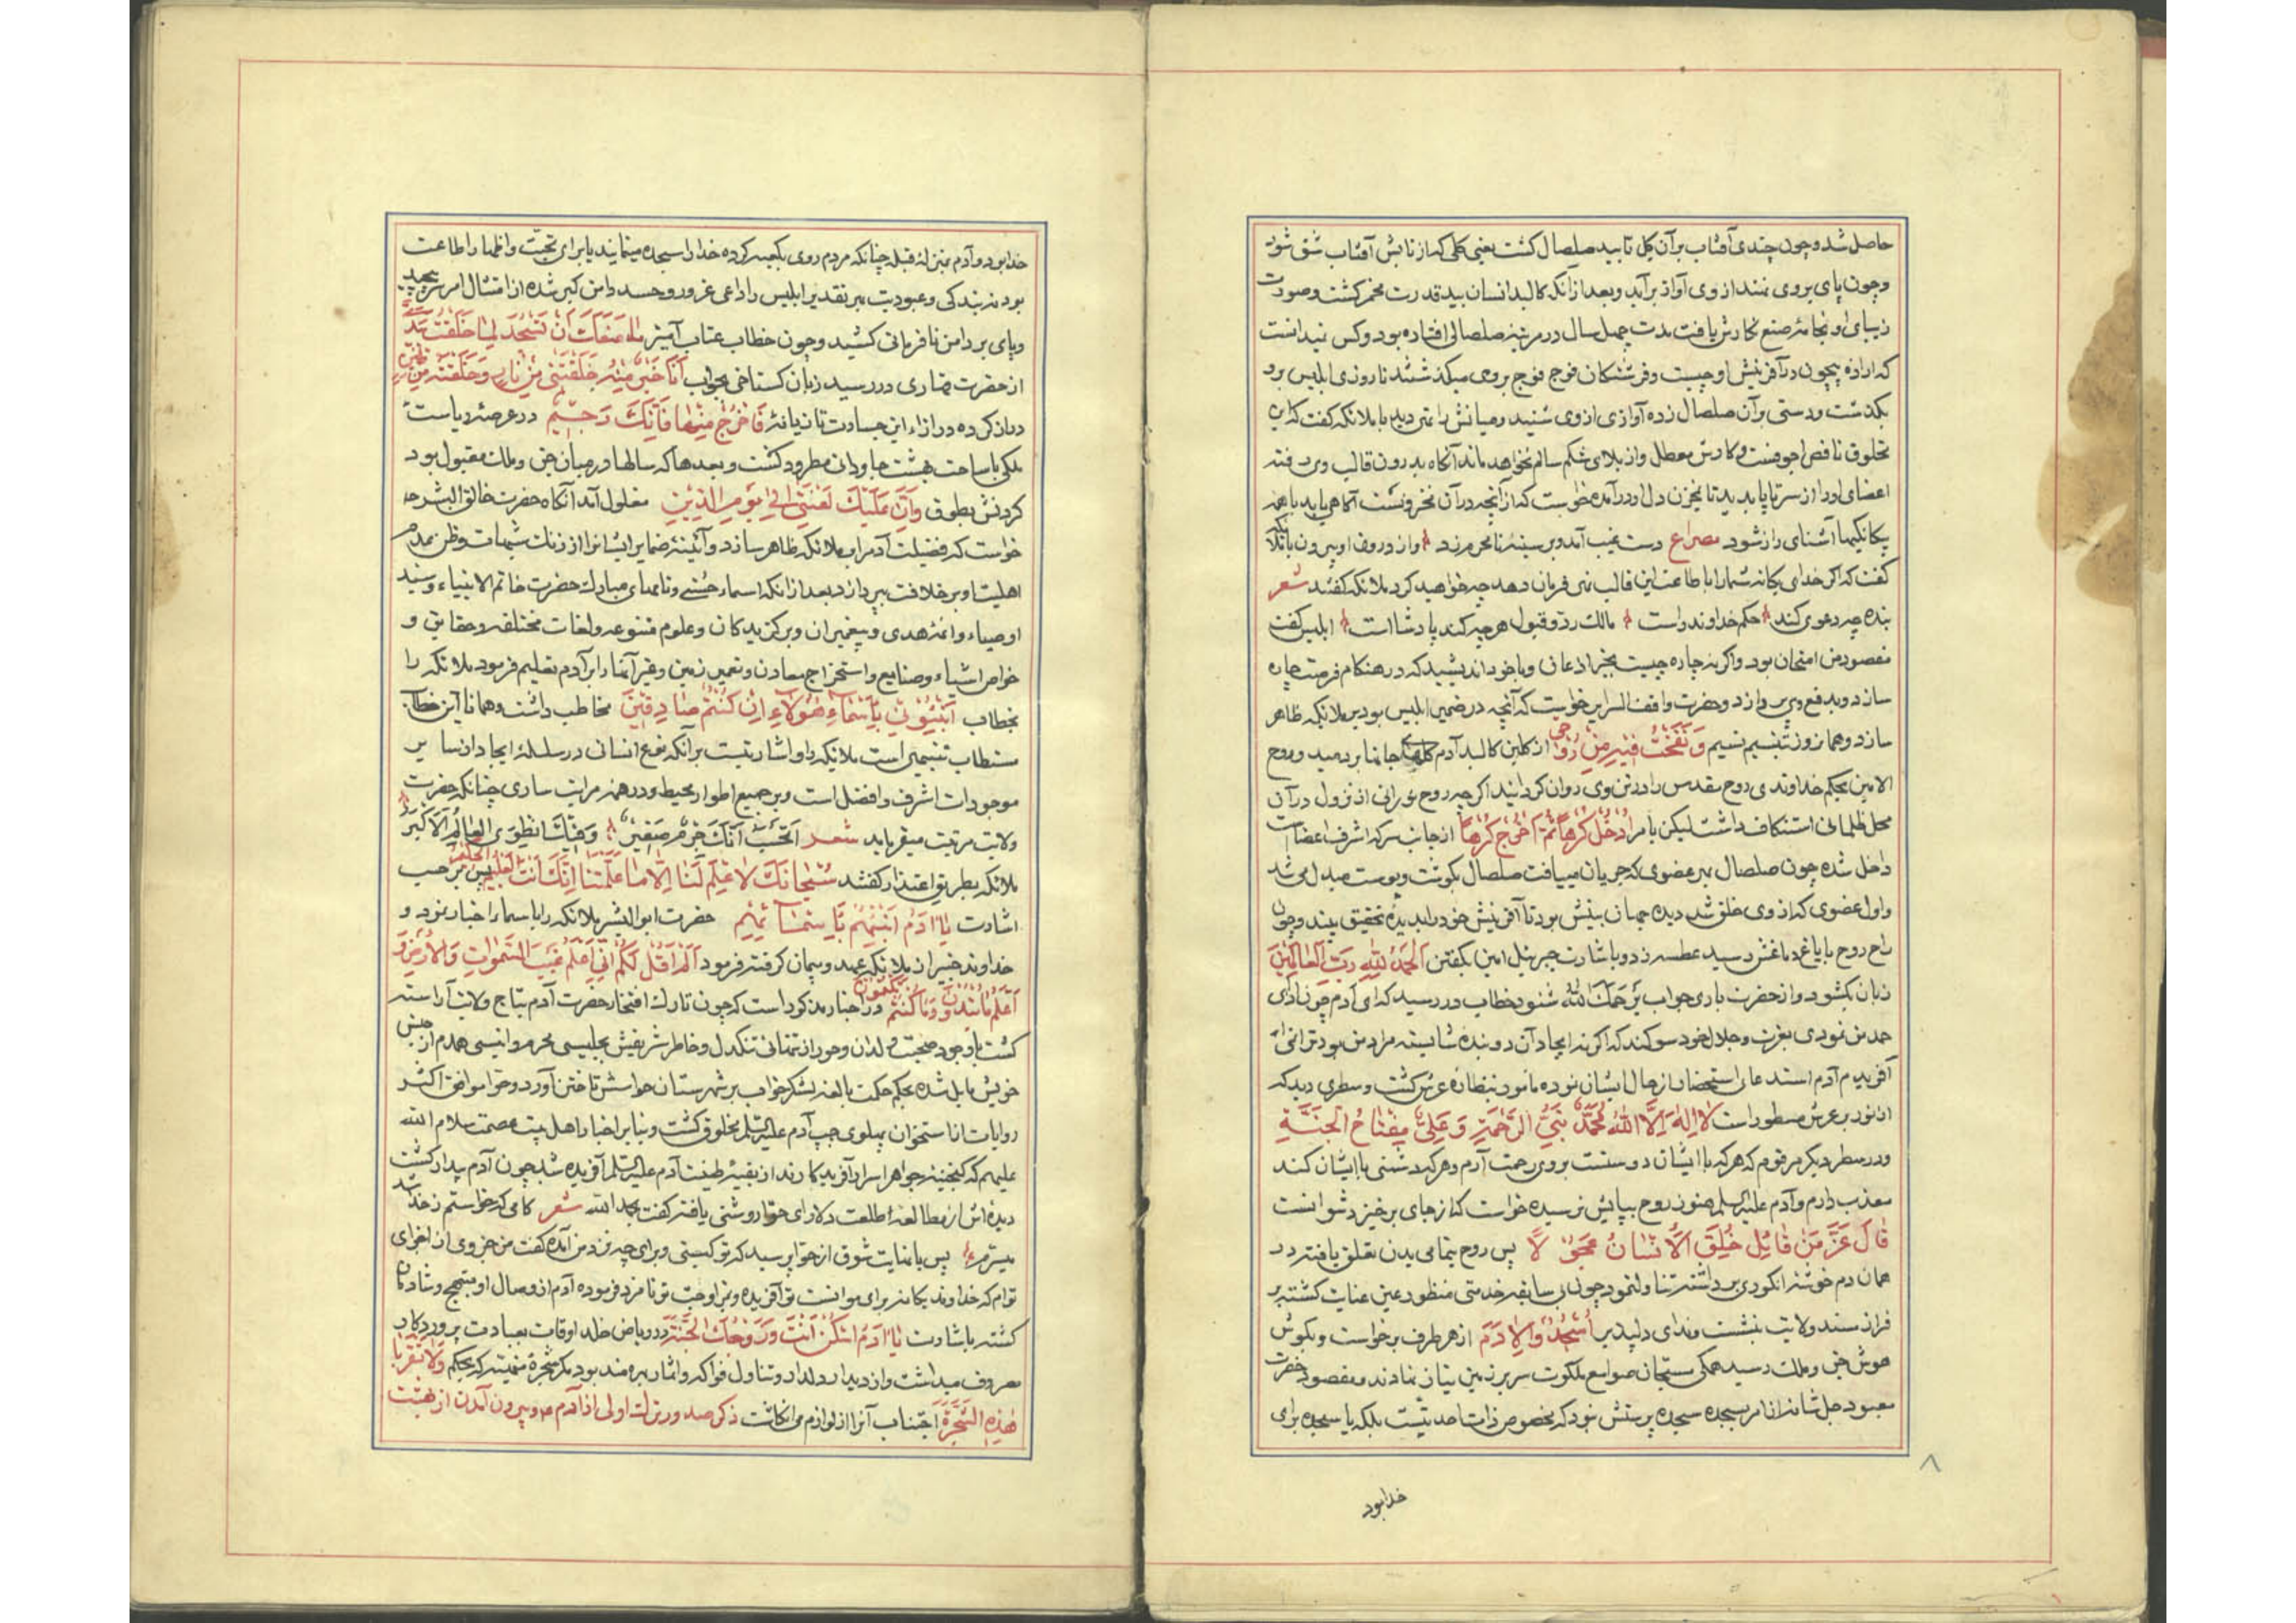 حاصل شد و چون چندی آفتاب بر آن کل تابید صلصال کشت یعنی کلی که از تابش آفتاب شق شود
و چون پای بر وی نهند از وی آواز برآید و بعد از آنکه کالبد انسان بید قدرت مخمر کشت و صورت
زیبای او بخامهٔ صنع نکارش یافت مدت چهل سال در مرتبهٔ صلصالی افتاده بود و کس نمیدانست
که ارادهٔ بیچون در آفرینش او چیست و فرشتکان فوج فوج بر وی میکذشتند تا روزی ابلیس برو
بکذشت و دستی بر آن صلصال زده آوازی از وی شنید و میانش را تهی دید با ملائکه کفت که این
مخلوق ناقص اجوفست و کارش معطل و از بلای شکم سالم نخواهد ماند آنکاه بدرون قالب وی رفته
اعضای او را از سر تا پا بدید تا بمخزن دل او درآمده خواست که از آنچه در آن مخزونست آکاهی یابد با همه
یکانکیها آشنای راز نشود مصراع دست غیب آمد و بر سینهٔ نامحرم زد و از درون او بیرون با ملائکه
کفت که اکر خدای یکانه شما را باطاعت این قالب تهی فرمان دهد چه خواهید کرد ملائکه کفتند شعر
بنده چه دعوی کند حکم خداوند راست مالک رد و قبول هر چه کند پادشا است ابلیس کفت
مقصود من امتحان بود و اکر نه چاره چیست بجز اذعان و با خود اندیشید که در هنکام فرصت چاره
سازد و بدفع وی پردازد و حضرت واقف السرایر خواست که آنچه در ضمیر ابلیس بود بر ملائکه ظاهر
سازد و همان روز بتنسیم نسیم وَنَفَخْتُ فیهِ مِنْ رُوحی از کلبن کالبد آدم کلهای جانها بردمید و روح
الامین بحکم خداوندی روح مقدس را در تن وی روان کردانید اکر چه روح نورانی از نزول در آن
محل ظلمانی استنکاف داشت لیکن بامر اُدْخُلْ کَرْهاً ثُمَّ اخْرُجْ کَرْهاً از جانب سر که اشرف اعضاست
داخل شده چون صلصال بهر عضوی که جریان مییافت صلصال بکوشت و پوست مبدل می شد
و اول عضوی که از وی خلق شد دیده جهان بینش بود تا آفرینش خود را بدیدهٔ تحقیق بیند و چون
راح روح بایاغ دماغش رسید عطسه زد و باشارت جبرئیل امین بکفتن اَلْحَمْدُ لِلّهِ رَبِّ الْعالَمینَ
زبان بکشود و از حضرت باری جواب یَرْحَمُکَ اللهُ شنود خطاب در رسید که ای آدم چون ادای
حمد من نمودی بعزت و جلال خود سوکند که اکر نه ایجاد آن دو بندهٔ شایسته مراد من بود ترا نمی
آفریدم آدم استدعای استحضار از حال ایشان نموده مامور بنظارهٔ عرش کشت و سطری دید که
از نور بر عرش مسطور است لا اِلهَ اِلاَّ اللهُ مُحَمَّدٌ نَبِیُّ الرَّحْمَةِ وَ عَلِیٌّ مِفْتاحُ الْجَنَّةِ
و در سطر دیکر مرقوم که هر که با ایشان دوستست بر وی رحمت آرم و هر که دشمنی با ایشان کند
معذب دارم و آدم علیه السلم هنوز روح بپایش نرسیده خواست که از جای برخیزد نتوانست
قالَ عَزَّ مَنْ قائِل خُلِقَ الْاِنْسانُ عَجُولاً پس روح بتمامی بدن تعلق یافته در
همان دم خوشهٔ انکوری برداشته تناول نمود چون بی سابقه خدمتی منظور عین عنایت کشته بر
فراز مسند ولایت بنشست و ندای دلپذیر اُسْجُدُوا لِادَمَ از هر طرف برخواست و بکوش
هوش جن و ملک رسید همکی مسبحان صوامع ملکوت سر بر زمین نیاز نهادند و مقصود حضرت
معبود جل شانه از امر بسجده سجدهٔ پرستش نبود که مخصوص ذات احدیتست بلکه یا سجده برای
۸
خدا بود
خدا بود و آدم بمنزلهٔ قبله چنانکه مردم روی بکعبه کرده خدا را سجده مینمایند یا برای تحیت و اظهار اطاعت
بود نه بندکی و عبودیت بهر تقدیر ابلیس را داعی غرور و حسد دامن کیر شده از امتثال امر سر پیچید
و پای بر دامن نافرمانی کشید و چون خطاب عتاب آمیز ما مَنَعَکَ اَنْ تَسْجُدَ لِما خَلَقْتُ بِیَدَیَّ
از حضرت قهاری در رسید زبان کستاخی بجواب اَنَا خَیْرٌ مِنْهُ خَلَقْتَنی مِنْ نارٍ وَ خَلَقْتَهُ مِنْ طینٍ
دراز کرده در ازاء این جسارت تازیانهٔ فَاخْرُجْ مِنْها فَاِنَّکَ رَجیمٌ در عرصهٔ ریاست
ملکی با ساحت بهشت جاودان مطرود کشت و بعدها که سالها در میان جن و ملک مقبول بود
کردنش بطوق وَاِنَّ عَلَیْکَ لَعْنَتی اِلی یَوْمِ الدّینِ مغلول آمد آنکاه حضرت خالق البشر
خواست که فضیلت آدم را بملائکه ظاهر سازد و آئینهٔ ضمایر ایشانرا از زنک شبهات وظن عدم
اهلیت او بر خلافت بپردازد بعد از آنکه اسماء حسنی و نامهای مبارک حضرت خاتم الانبیاء و سید
اوصیاء و ائمهٔ هدی و پیغمبران و برکزیدکان و علوم متنوعه و لغات مختلفه و حقایق و
خواص اشیاء و صنایع و استخراج معادن و تعمیر زمین و غیر آنها را بر آدم تعلیم فرمود ملائکه را
بخطاب اَنْبِئُونی بِاَسْماءِ هؤُلاءِ اِنْ کُنْتُمْ صادِقینَ مخاطب داشت و همانا این خطاب
مستطاب تنبیهی است ملائکه را و اشارتیست بر آنکه نوع انسانی در سلسلهٔ ایجاد از سایر
موجودات اشرف و افضل است و بر جمیع اطوار محیط و در همه مراتب ساری چنانکه حضرت
ولایت مرتبت میفرماید شعر اَتَحْسَبُ اَنَّکَ جِرْمٌ صَغیرٌ وَ فیکَ انْطَوَی الْعالَمُ الْاَکْبَرُ
ملائکه بطریق اعتذار کفتند سُبْحانَکَ لا عِلْمَ لَنا اِلاّ ما عَلَّمْتَنا اِنَّکَ اَنْتَ الْعَلیمُ الْحَکیمُ پس بر حسب
اشارت یا ادَمُ اَنْبِئْهُمْ بِاَسْمآئِهِمْ حضرت ابو البشر ملائکه را با سما اخبار نمود و
خداوند خبیر از ملائکه عهد و پیمان کرفته فرمود اَلَمْ اَقُلْ لَکُمْ اِنّی اَعْلَمُ غَیْبَ السَّمواتِ وَالْاَرْضِ وَ
اَعْلَمُ ما تُبْدُونَ وَ ما کُنْتُمْ تَکْتُمُونَ در اخبار مذکور است که چون تارک افتخار حضرت آدم بتاج ولایت آراسته
کشت با وجود صحبت ولدان و حور از تنهائی تنکدل و خاطر شریفش بجلیسی محرم و انیسی همدم از جنس
خویش مایل شده بحکم حکمت بالغه لشکر خواب بر شهرستان حواسش تاختن آورد و حوا موافق اکثر
روایات از استخوان پهلوی چپ آدم علیه السلم مخلوق کشت و بنا بر اخبار اهل بیت عصمت سلام الله
علیهم که کنجینهٔ جواهر اسرار آفریدکارند از بقیهٔ طینت آدم علیه السلم آفریده شد چون آدم بیدار کشت
دیده اش از مطالعهٔ طلعت دلارای حوا روشنی یافته کفت بحمد الله شعر کامی که خواستم ز خدا شد
میسرم پس با غایت شوق از حوا پرسید که تو کیستی و برای چه نزد من آمدهٔ کفت من جزوی از اجزای
توام که خداوند یکانه برای موانست تو آفریده و مرا وجب تو نامزد فرموده آدم از وصال او مبتهج و شادمان
کشته باشارت یا ادَمُ اسْکُنْ اَنْتَ وَ زَوْجُکَ الْجَنَّةَ در ریاض خلد اوقات بعبادت پروردکار
مصروف میداشت و از دیدار دلدار و تناول فواکه و اثمار بهره مند بود مکر شجرهٔ منهیه که بحکم وَلا تَقْرَبا
هذِهِ الشَّجَرَةَ اجتناب آنرا از لوازم می انکاشت ذکر صدور ترک اولی از آدم ع و بیرون آمدن از بهشت